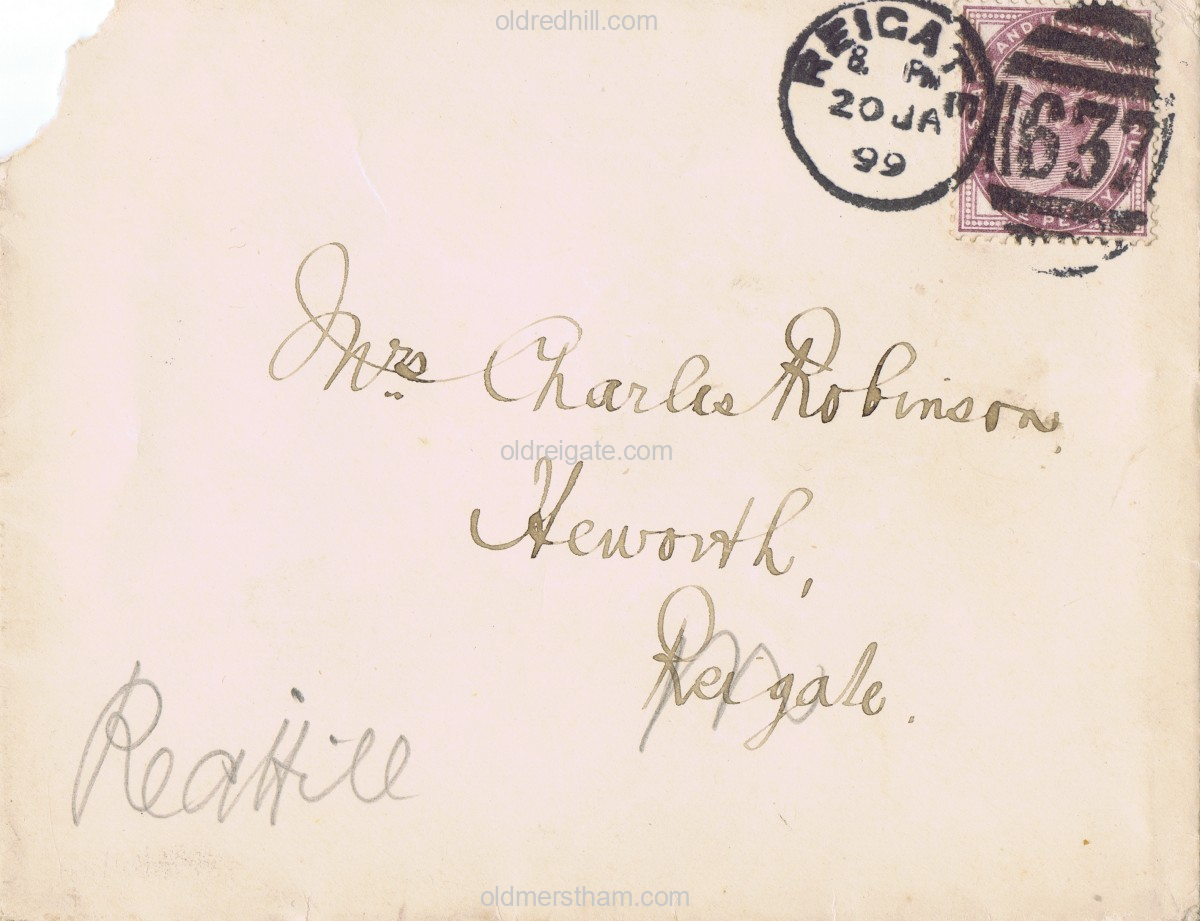 oldredhill.com
REIGATE
8 PM
20 JA
99
632
Mrs Charles Robinson,
oldreigate.com
Heworth,
Reigate.
RedHill
oldmerstham.com